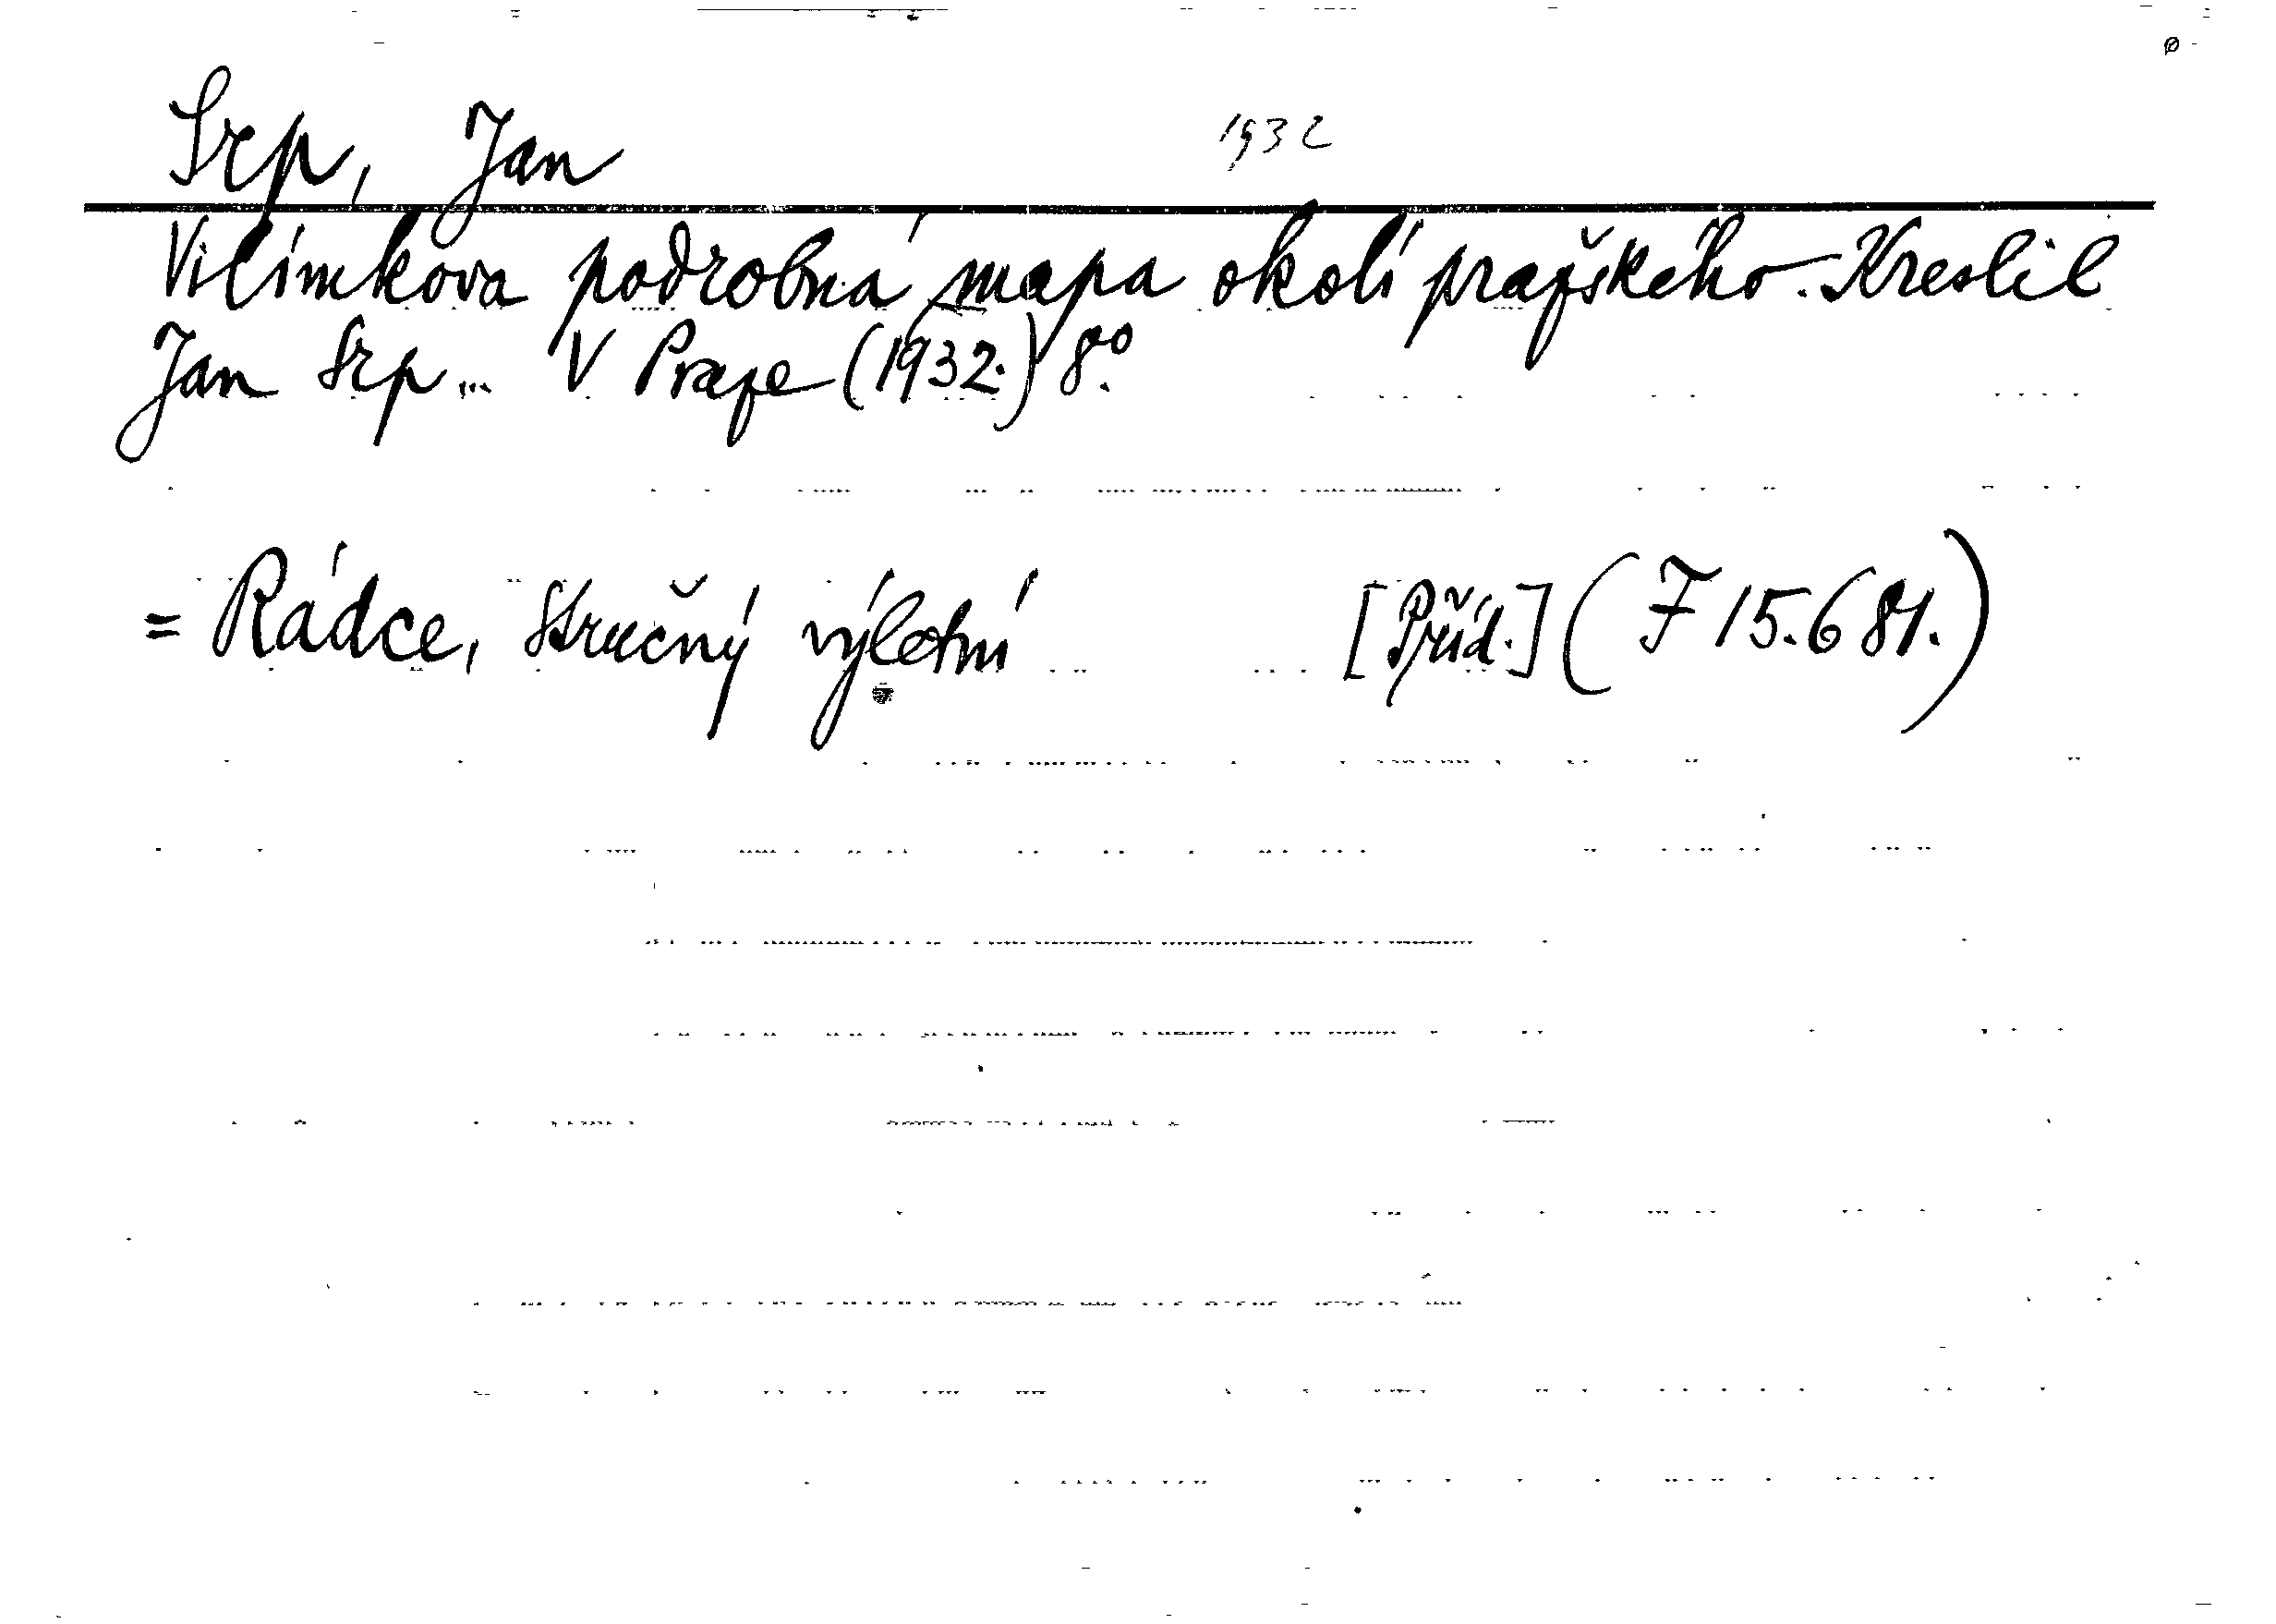 Srp, Jan 1932
Vilímkova podrobná mapa okolí pražského. Kreslil
Jan Srp... V Praze (1932.) 8°.
= Rádce, stručný výletní [Příd.] (F 15.681.)